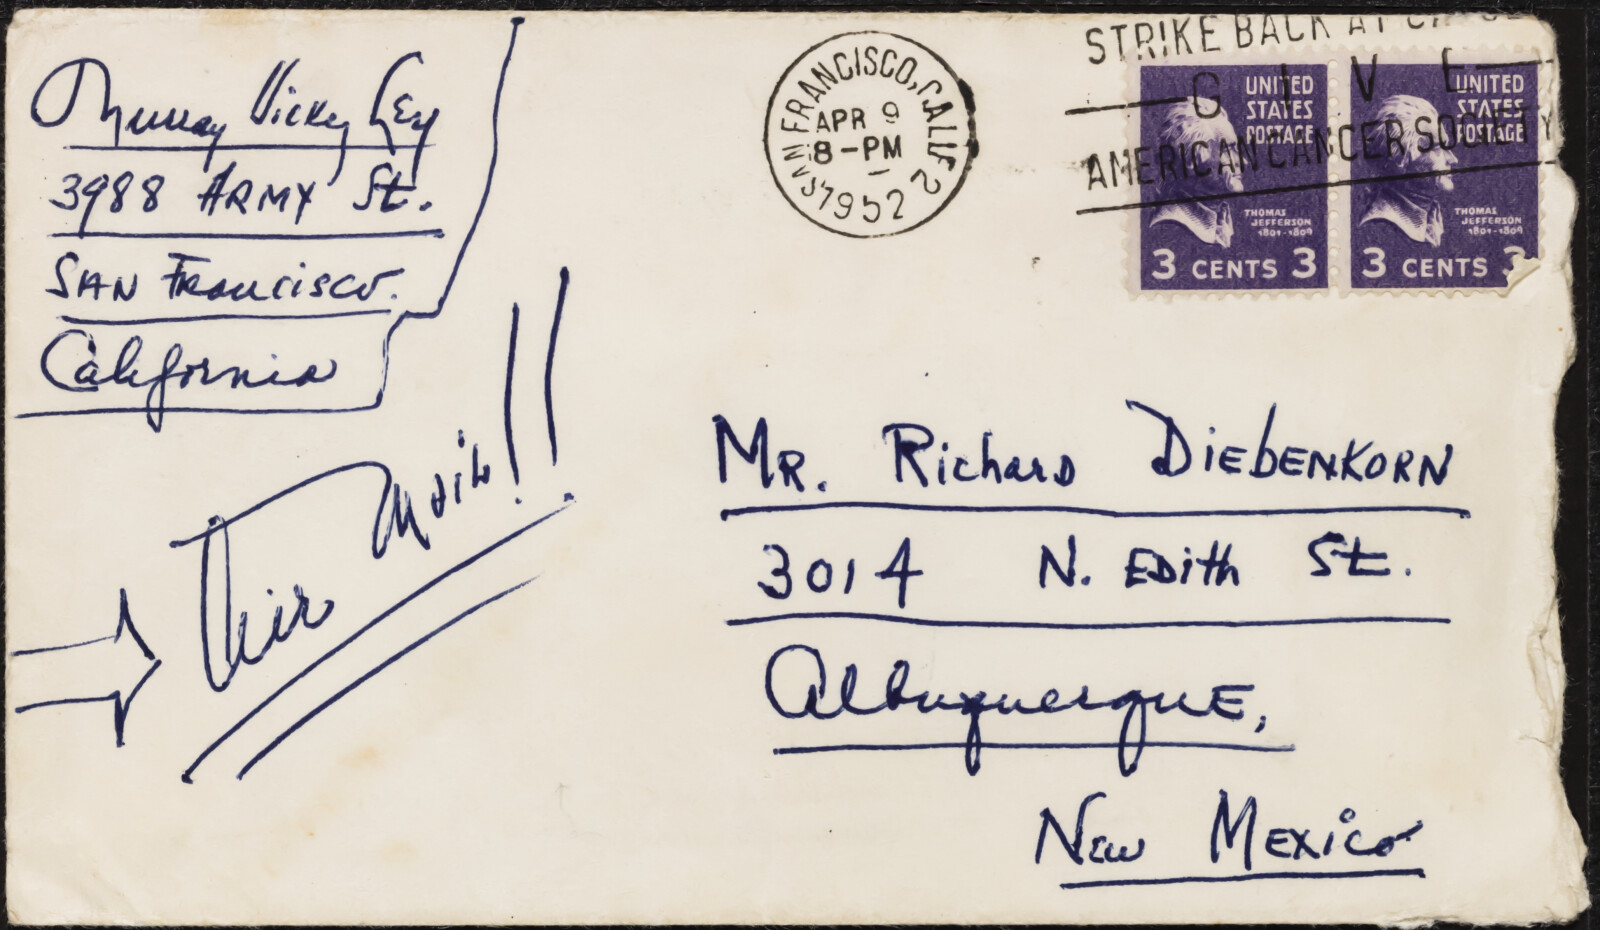 Murray Vicky Ley
3988 ARMY St.
SAN FRANCISCO.
California
SAN FRANCISCO, CALIF. 2
APR 9
8-PM
1952
STRIKE BACK AT
GIVE
AMERICAN CANCER SOCIETY
UNITED
STATES
POSTAGE
THOMAS
JEFFERSON
1801-1809
3 CENTS 3
UNITED
STATES
POSTAGE
THOMAS
JEFFERSON
1801-1809
3 CENTS 3
Air Mail!!
MR. Richard DIEbENKORN
3014 N. EDith St.
AlbuquerquE,
New MEXico